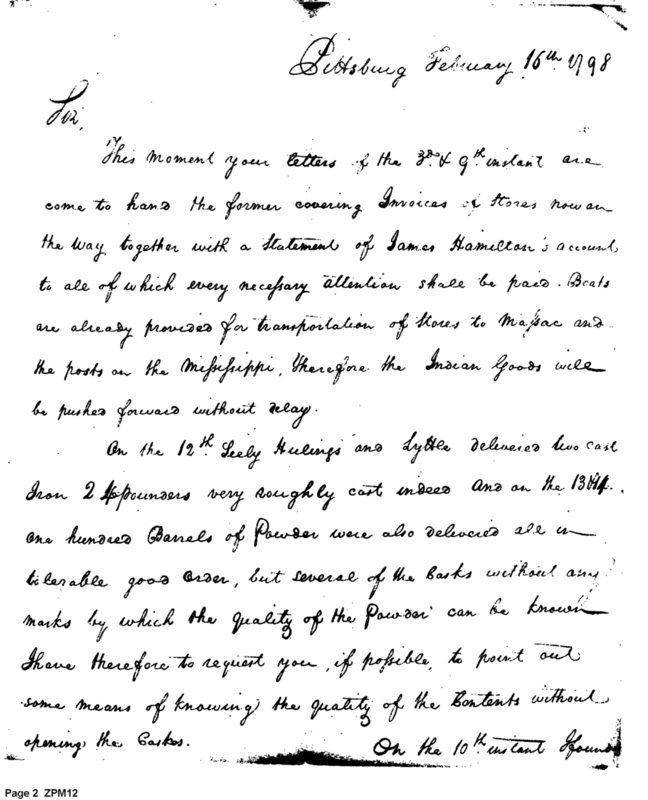 Pittsburg February 16th 1798
Sir,
This moment your letters of the 3d. & 9th. instant are
come to hand the former covering Invoices of Stores now on
the way together with a Statement of James Hamilton's account
to all of which every necessary attention shall be paid. Boats
are already provided for transportation of Stores to Massac and
the posts on the Mississippi, therefore the Indian Goods will
be pushed forward without delay.
On the 12th. Seely Hulings and Lyttle delivered two cast
Iron 24 pounders very roughly cast indeed and on the 13th
one hundred Barrels of Powder were also delivered all in
tolerable good order, but several of the Casks without any
marks by which the quality of the Powder can be known
I have therefore to request you, if possible, to point out
some means of knowing the quality of the Contents without
opening the Casks.
On the 10th instant I found
Page 2 ZPM12